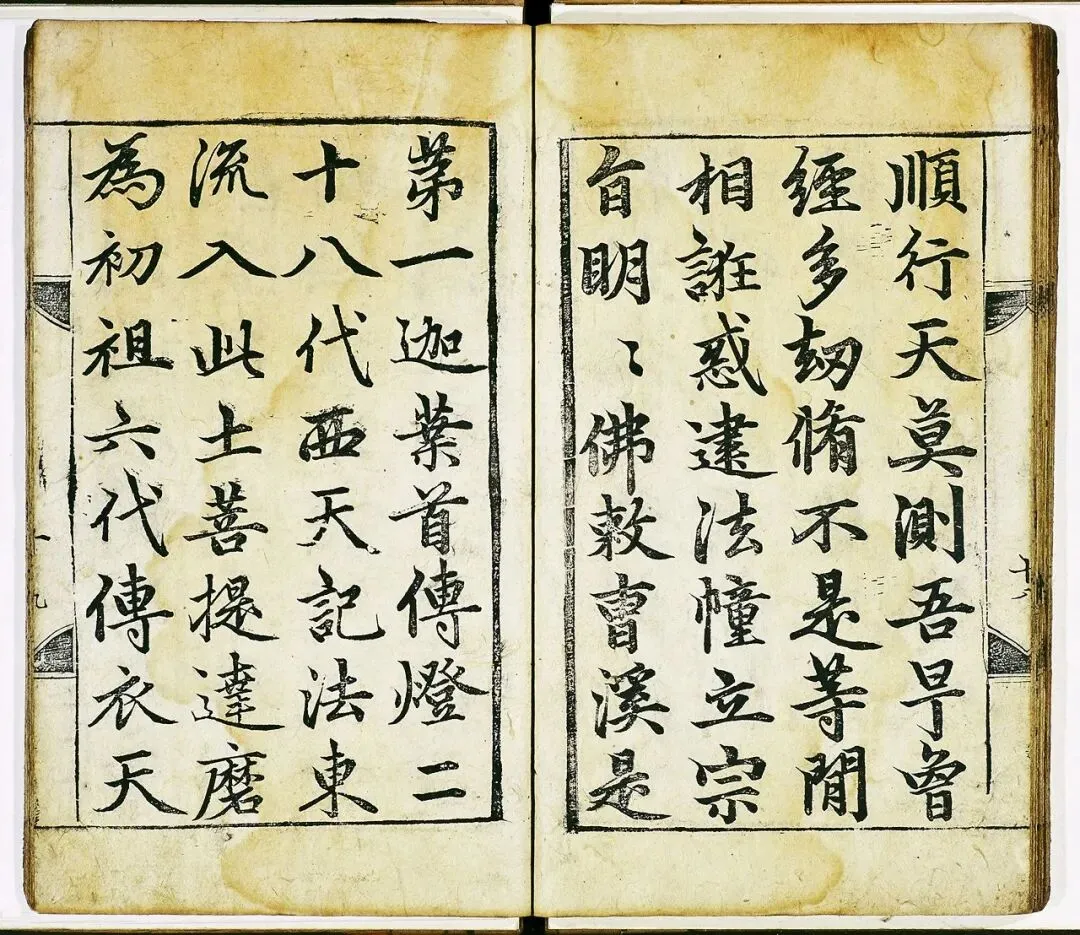 順行天莫測吾早曾
經多劫脩不是等閒
相誑惑建法幢立宗
旨明〻佛敕曺溪是
苐一迦葉首傳燈二
十八代西天記法東
流入此土菩提達磨
為初祖六代傳衣天